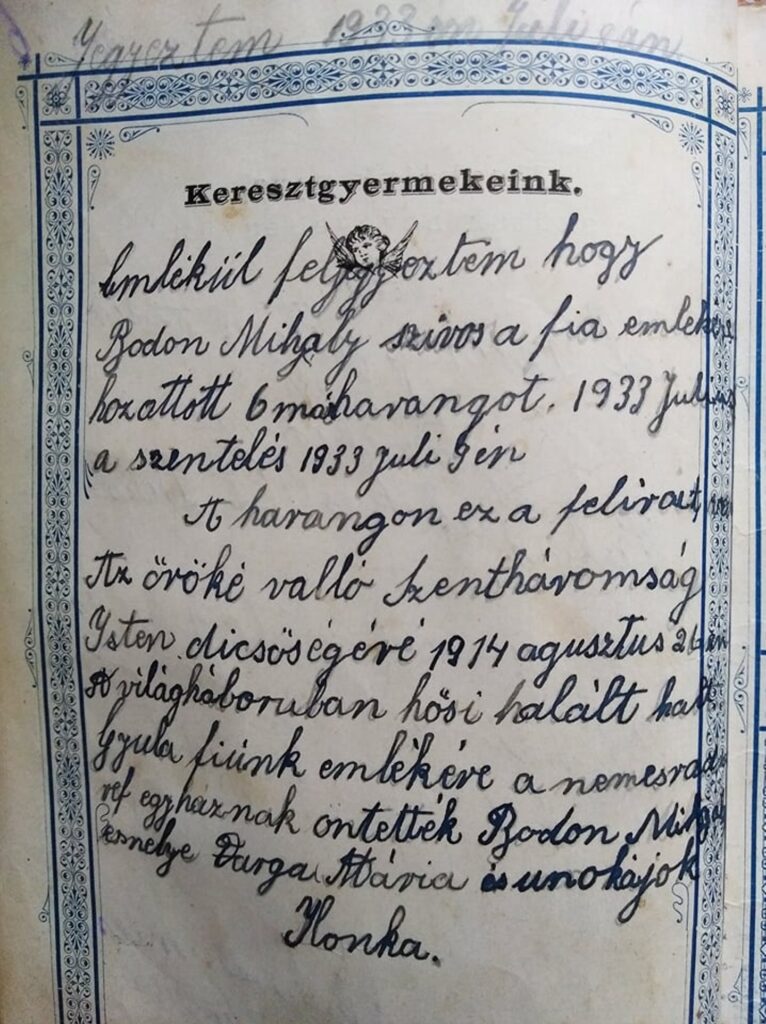 Jegyeztem 1933 Juli
Keresztgyermekeink.
Emlékül feljegyeztem hogy
Bodon Mihaly szivos a fia emlekére
hozattott 6 má harangot. 1933 Julius
a szentelés 1933 Juli 9 én
A harangon ez a felirat
Az öröké valló Szentháromság
Isten dicsöségéré 1914 agusztus 26 án
A világháboruban hősi halált halt
Gyula fiúnk emlékére a nemesrad
ref egyháznak öntették Bodon Mihaly
esnelye Varga Mária és unokájok
Ilonka.